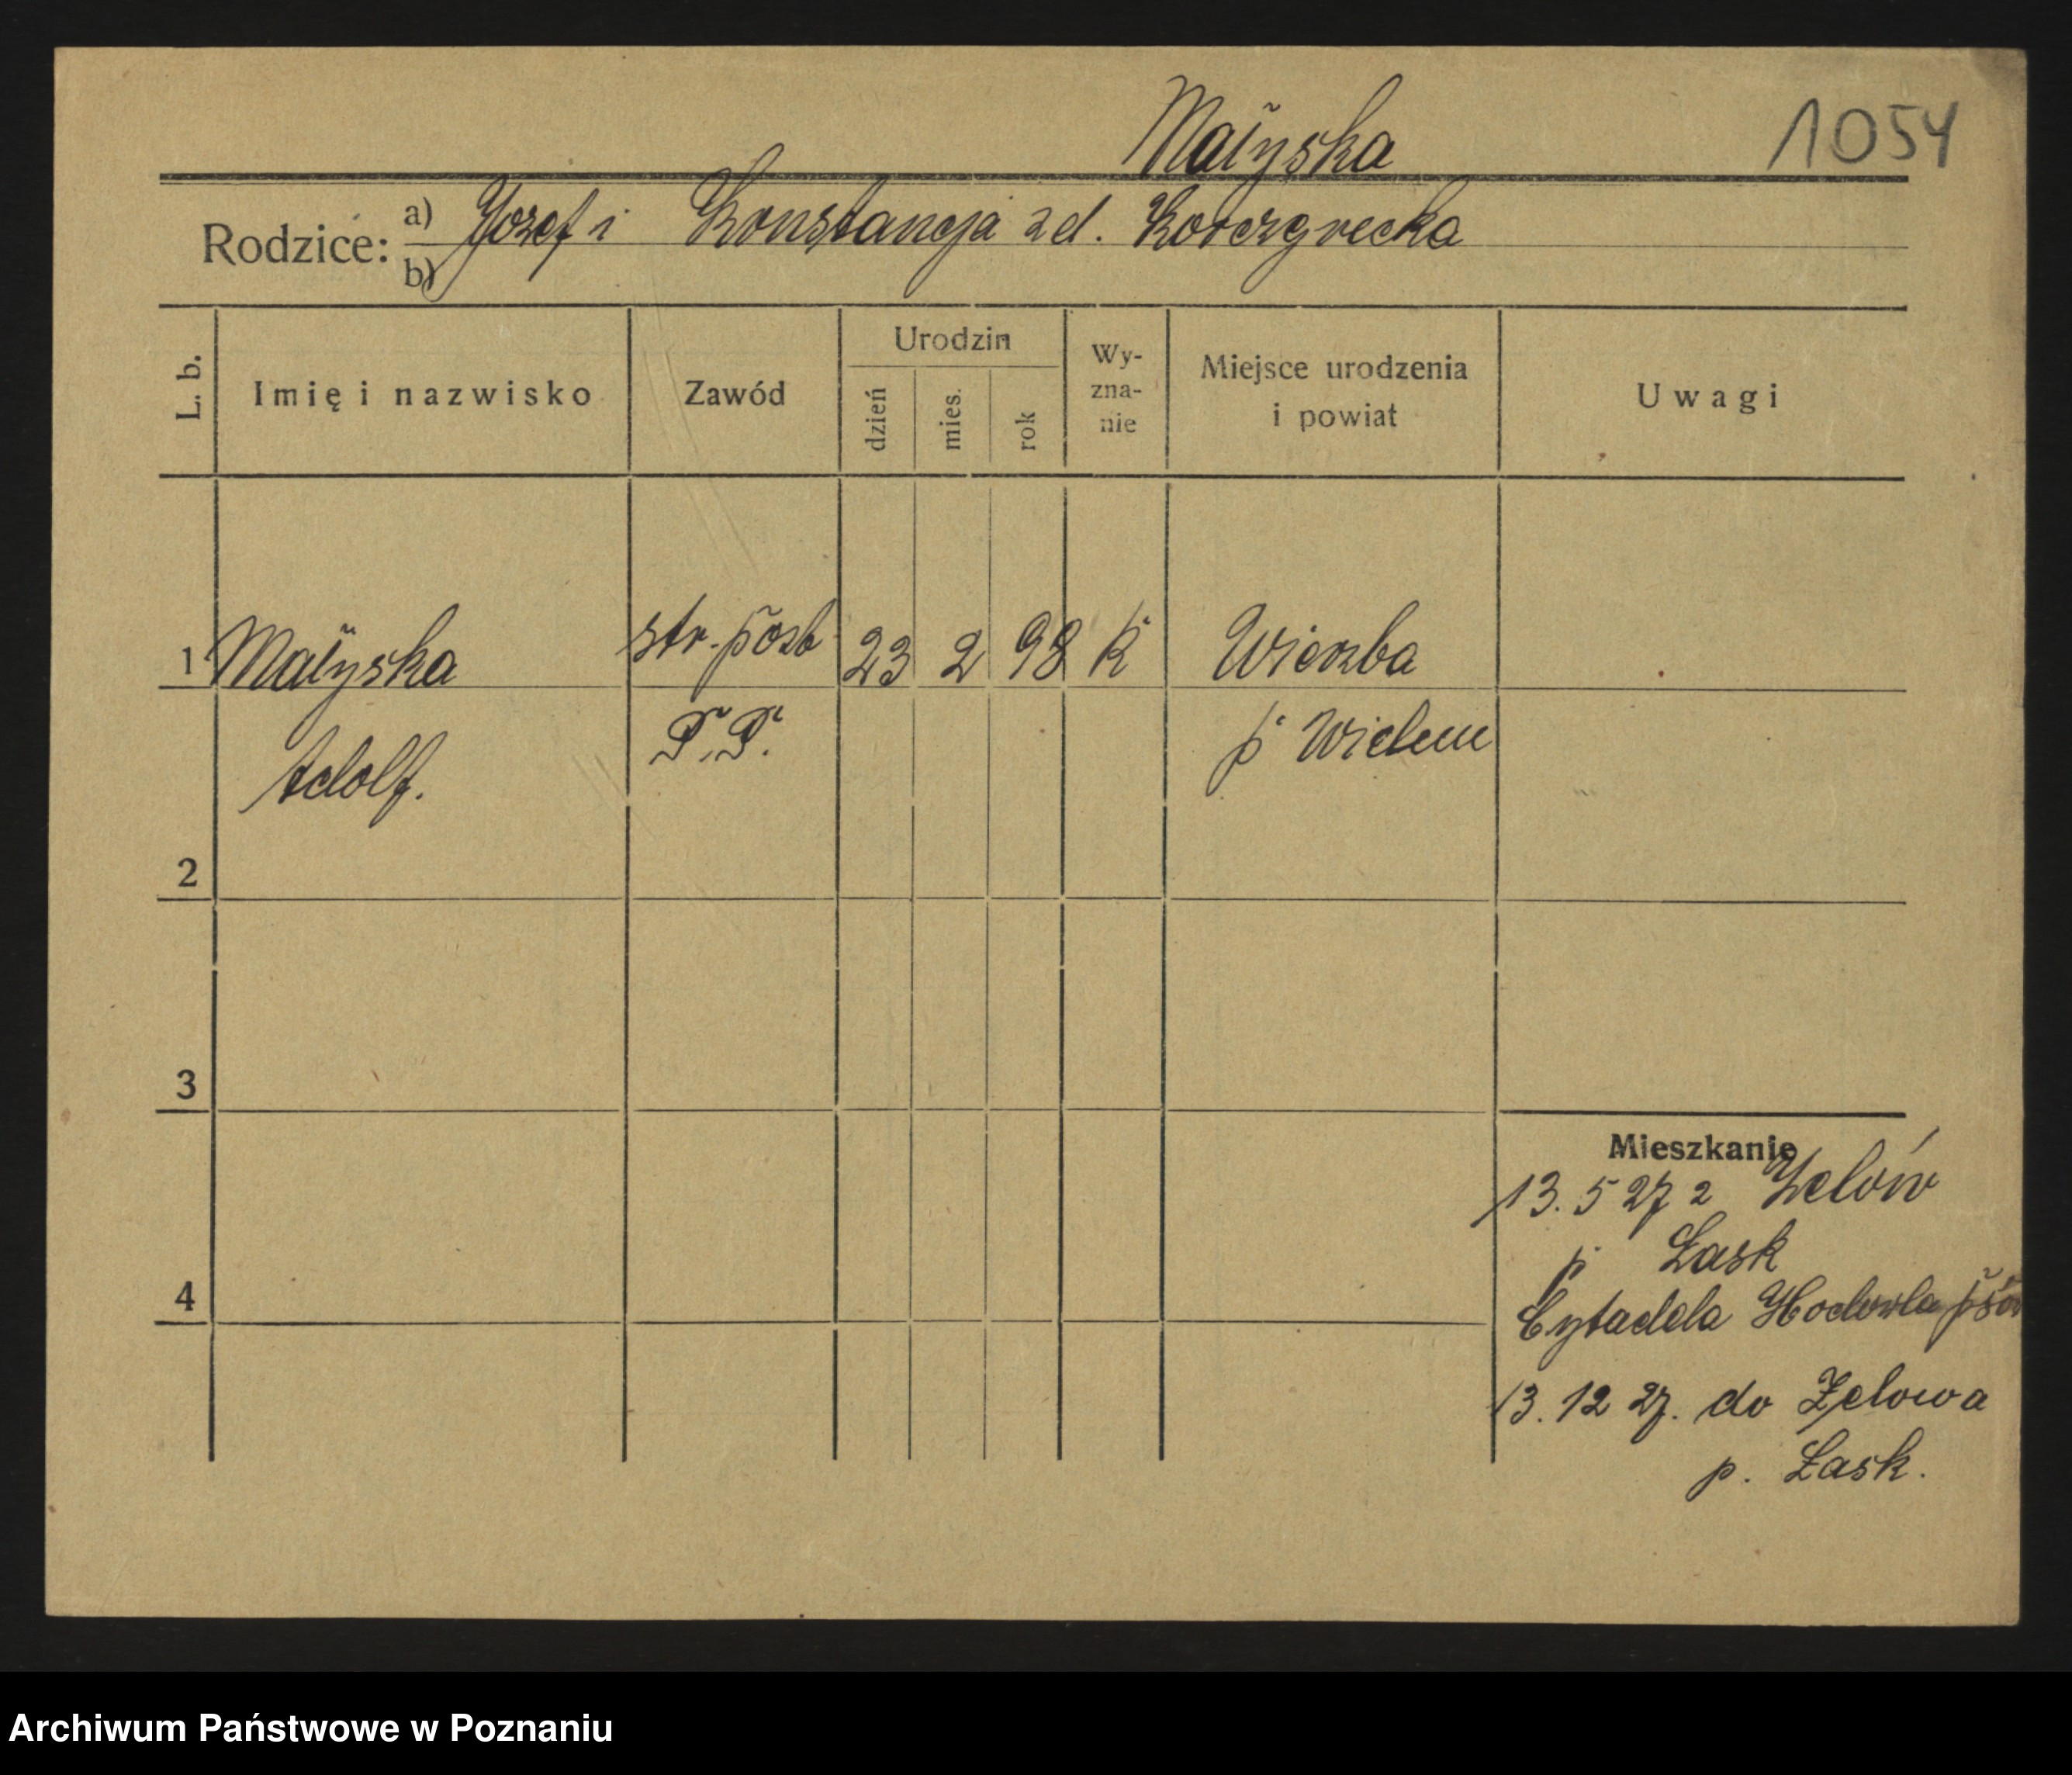 Małyska
1054
Rodzice: a) Józef i Konstancja z d.
b)
L. b.
Imię i nazwisko
Zawód
Urodzin
dzień
mies.
rok
Wy-
zna-
nie
Miejsce urodzenia
i powiat
Uwagi
1 Małyska str. post 23 2 98 k
Adolf. P.P.
2
3
4
Mieszkanie
13. 5 27 z Zelów
p. Łask
Cytadela Hodowla psów
13. 12 27. do Zelowa
p. Łask.
Archiwum Państwowe w Poznaniu